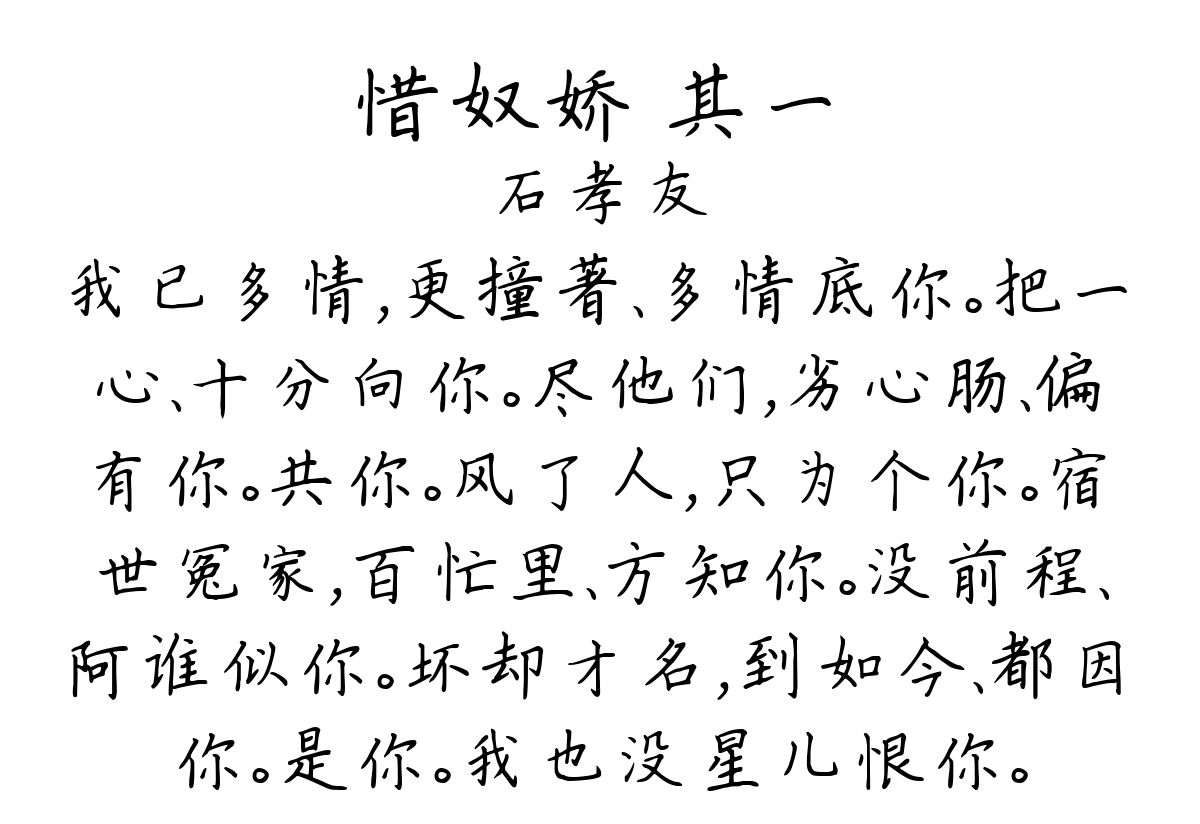 惜奴娇 其一
石孝友
我已多情,更撞著、多情底你。把一
心、十分向你。尽他们,劣心肠、偏
有你。共你。风了人,只为个你。宿
世冤家,百忙里、方知你。没前程、
阿谁似你。坏却才名,到如今、都因
你。是你。我也没星儿恨你。